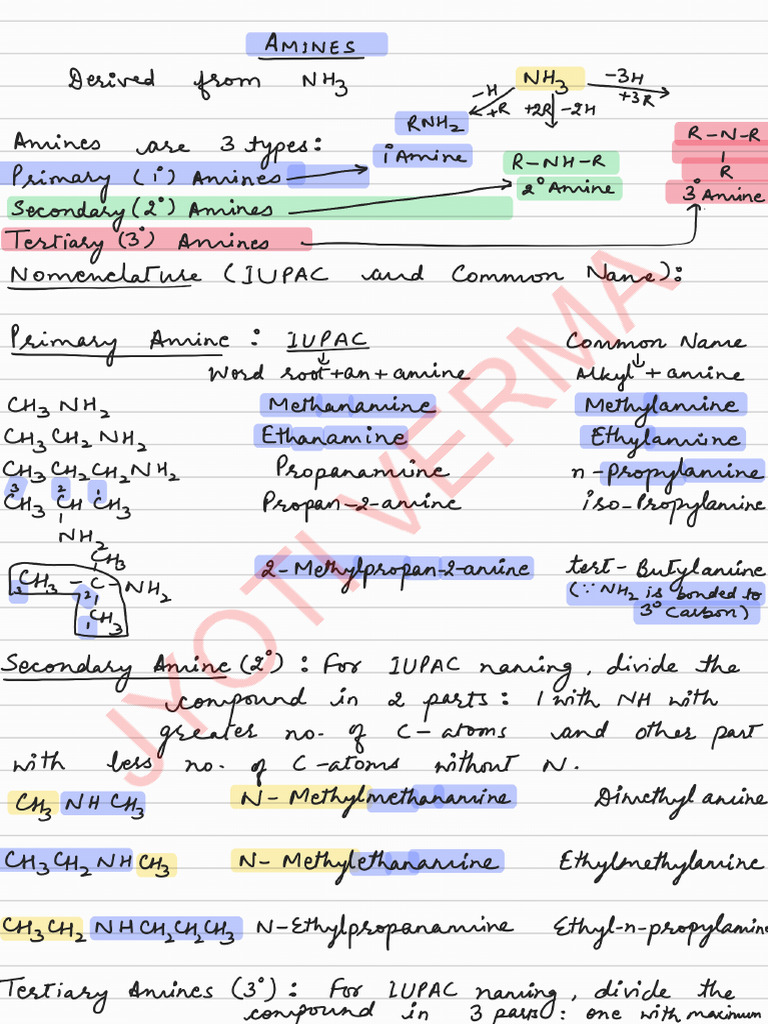 AMINES
Derived from NH3
NH3
-H
+R
+2R -2H
-3H
+3R
RNH2
1° Amine
R-NH-R
2° Amine
R-N-R
R
3° Amine
Amines are 3 types:
Primary (1°) Amines
Secondary (2°) Amines
Tertiary (3°) Amines
Nomenclature (IUPAC and Common Name):
Primary Amine : IUPAC Common Name
Word root+an+amine Alkyl + amine
CH3 NH2 Methanamine Methylamine
CH3 CH2 NH2 Ethanamine Ethylamine
CH3 CH2 CH2 NH2 Propanamine n-propylamine
3 2 1
CH3 CH CH3 Propan-2-amine iso-Propylamine
NH2
CH3
CH3 - C - NH2 2-Methylpropan-2-amine tert-Butylamine
3 2 (∵ NH2 is bonded to
CH3 3° Carbon)
1
Secondary Amine (2°) : For IUPAC naming, divide the
compound in 2 parts: 1 with NH with
greater no. of C-atoms and other part
with less no. of C-atoms without N.
CH3 NH CH3 N-Methylmethanamine Dimethyl amine
CH3 CH2 NH CH3 N-Methylethanamine Ethylmethylamine
CH3 CH2 NH CH2 CH2 CH3 N-Ethylpropanamine Ethyl-n-propylamine
Tertiary Amines (3°) : For IUPAC naming, divide the
compound in 3 parts: one with maximum
JYOTI VERMA